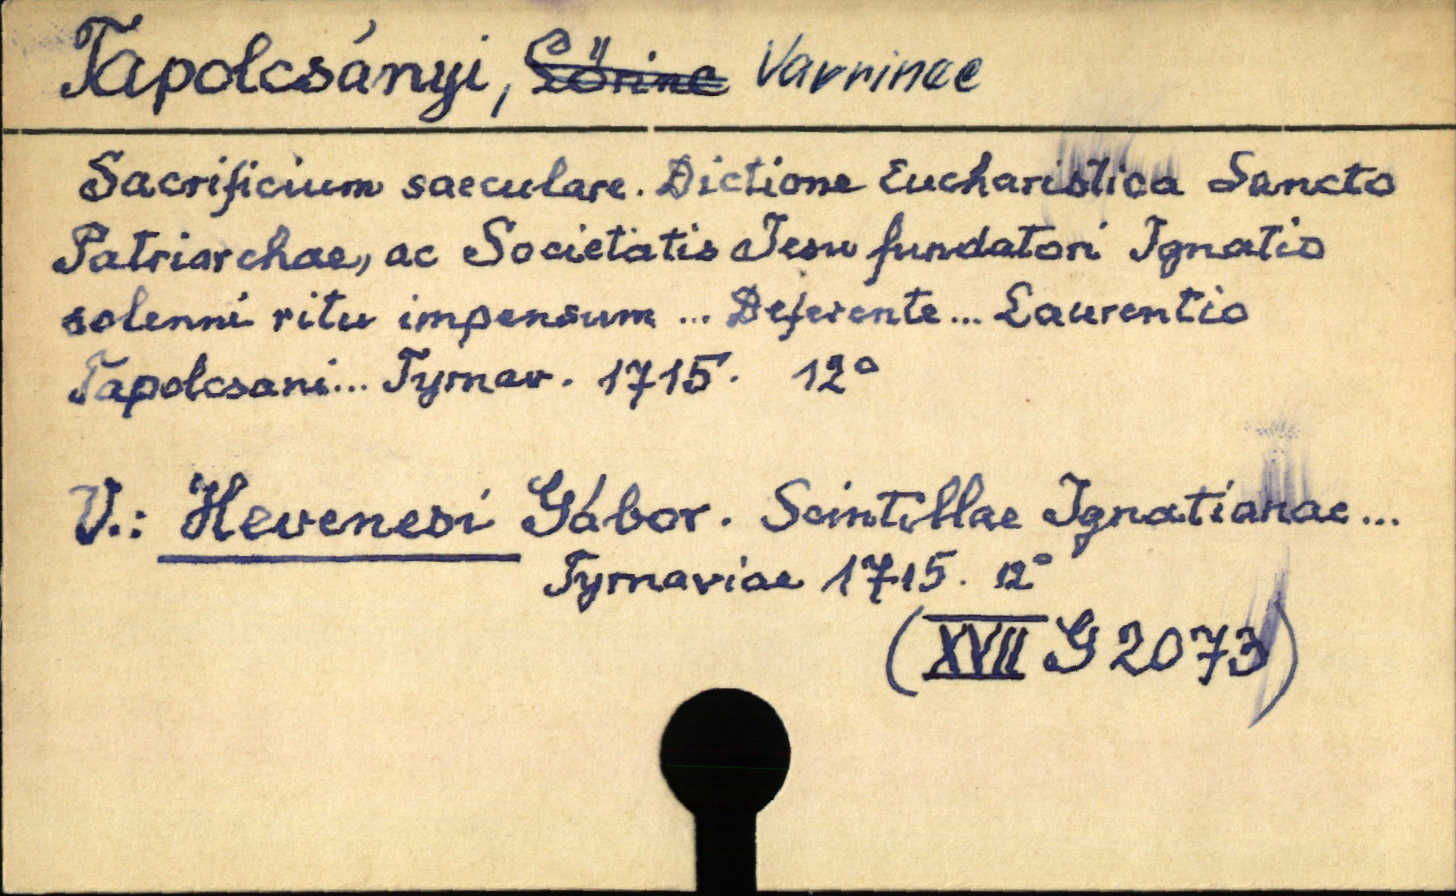 Tapolcsányi, Lőrinc Vavrinec
Sacrificium saeculare. Dictione Eucharistica Sancto
Patriarchae, ac Societatis Jesu fundatori Ignatio
solenni ritu impensum ... Deferente ... Laurentio
Tapolcsani ... Tyrnav. 1715. 12°
V.: Hevenesi Gábor. Scintillae Ignatianae ...
Tyrnaviae 1715. 12°
(XVII G 2073)